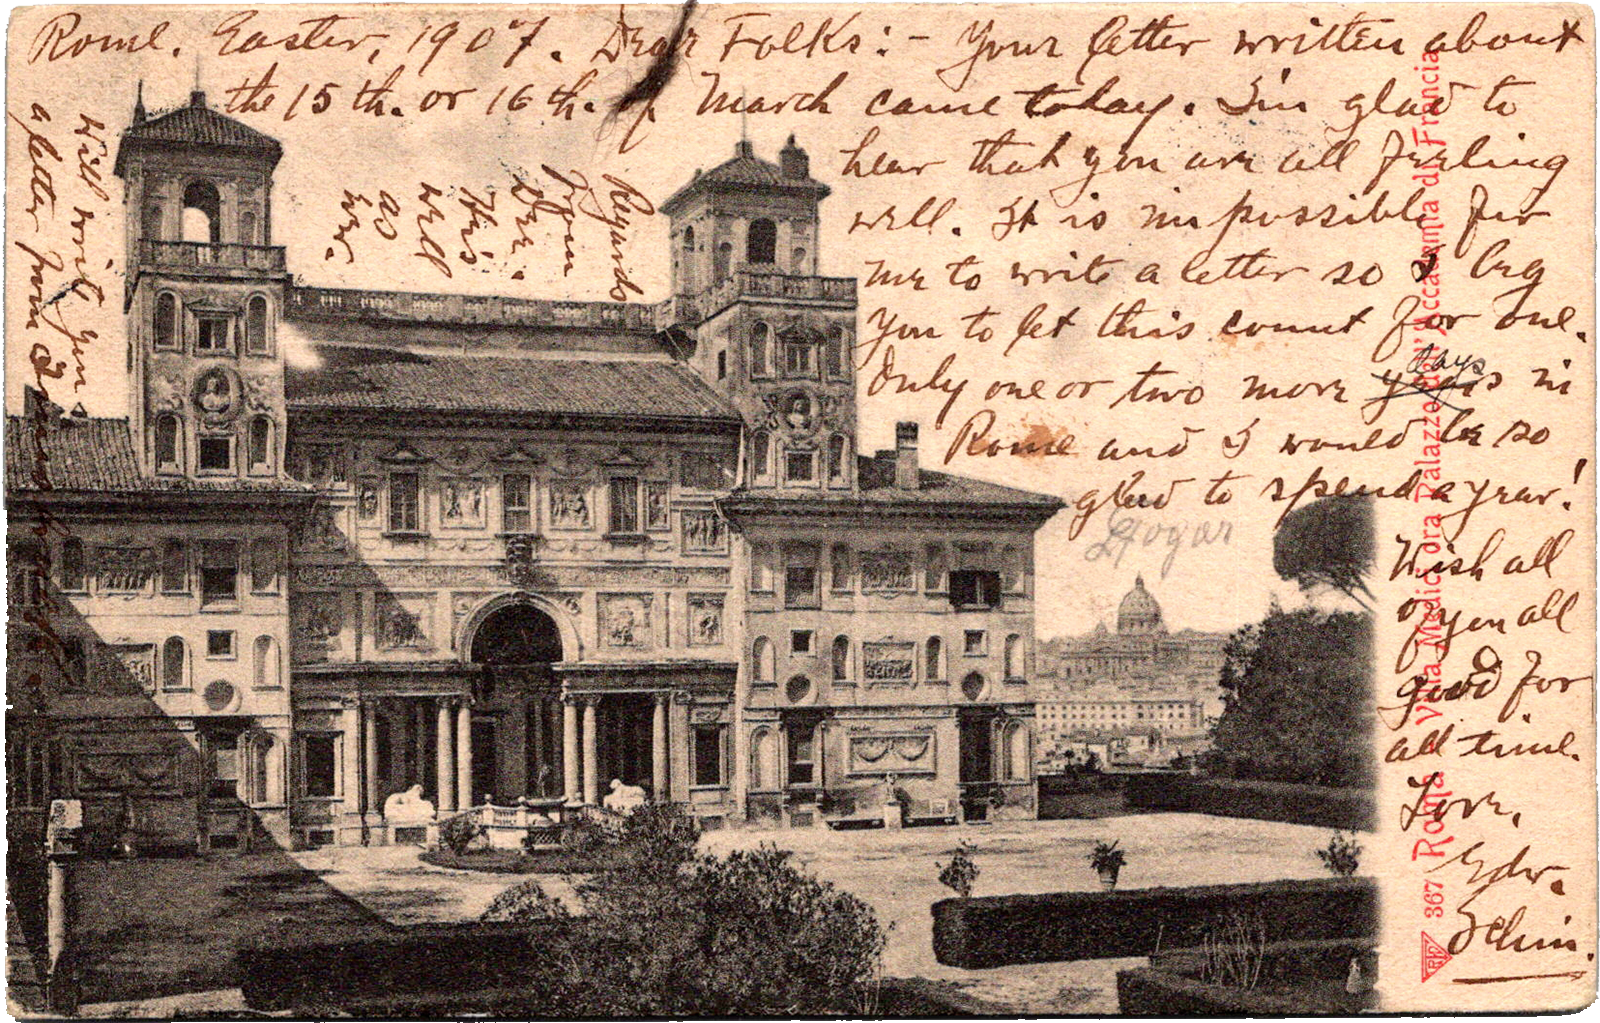 Rome. Easter, 1907. Dear Folks:- Your letter written about
the 15th. or 16th. of March came today. I'm glad to
hear that you are all feeling
well. It is impossible for
me to write a letter so I beg
you to let this count for one.
Only one or two more days in
Rome and I would be so
glad to spend a year!
Wish all
of you all
good for
all time.
Love,
Edw.
Regards
from
Dee.
He's
well
as
ever.
Will write you
a letter from
367 Roma - Villa Medici ora Palazzo dell'Accademia di Francia